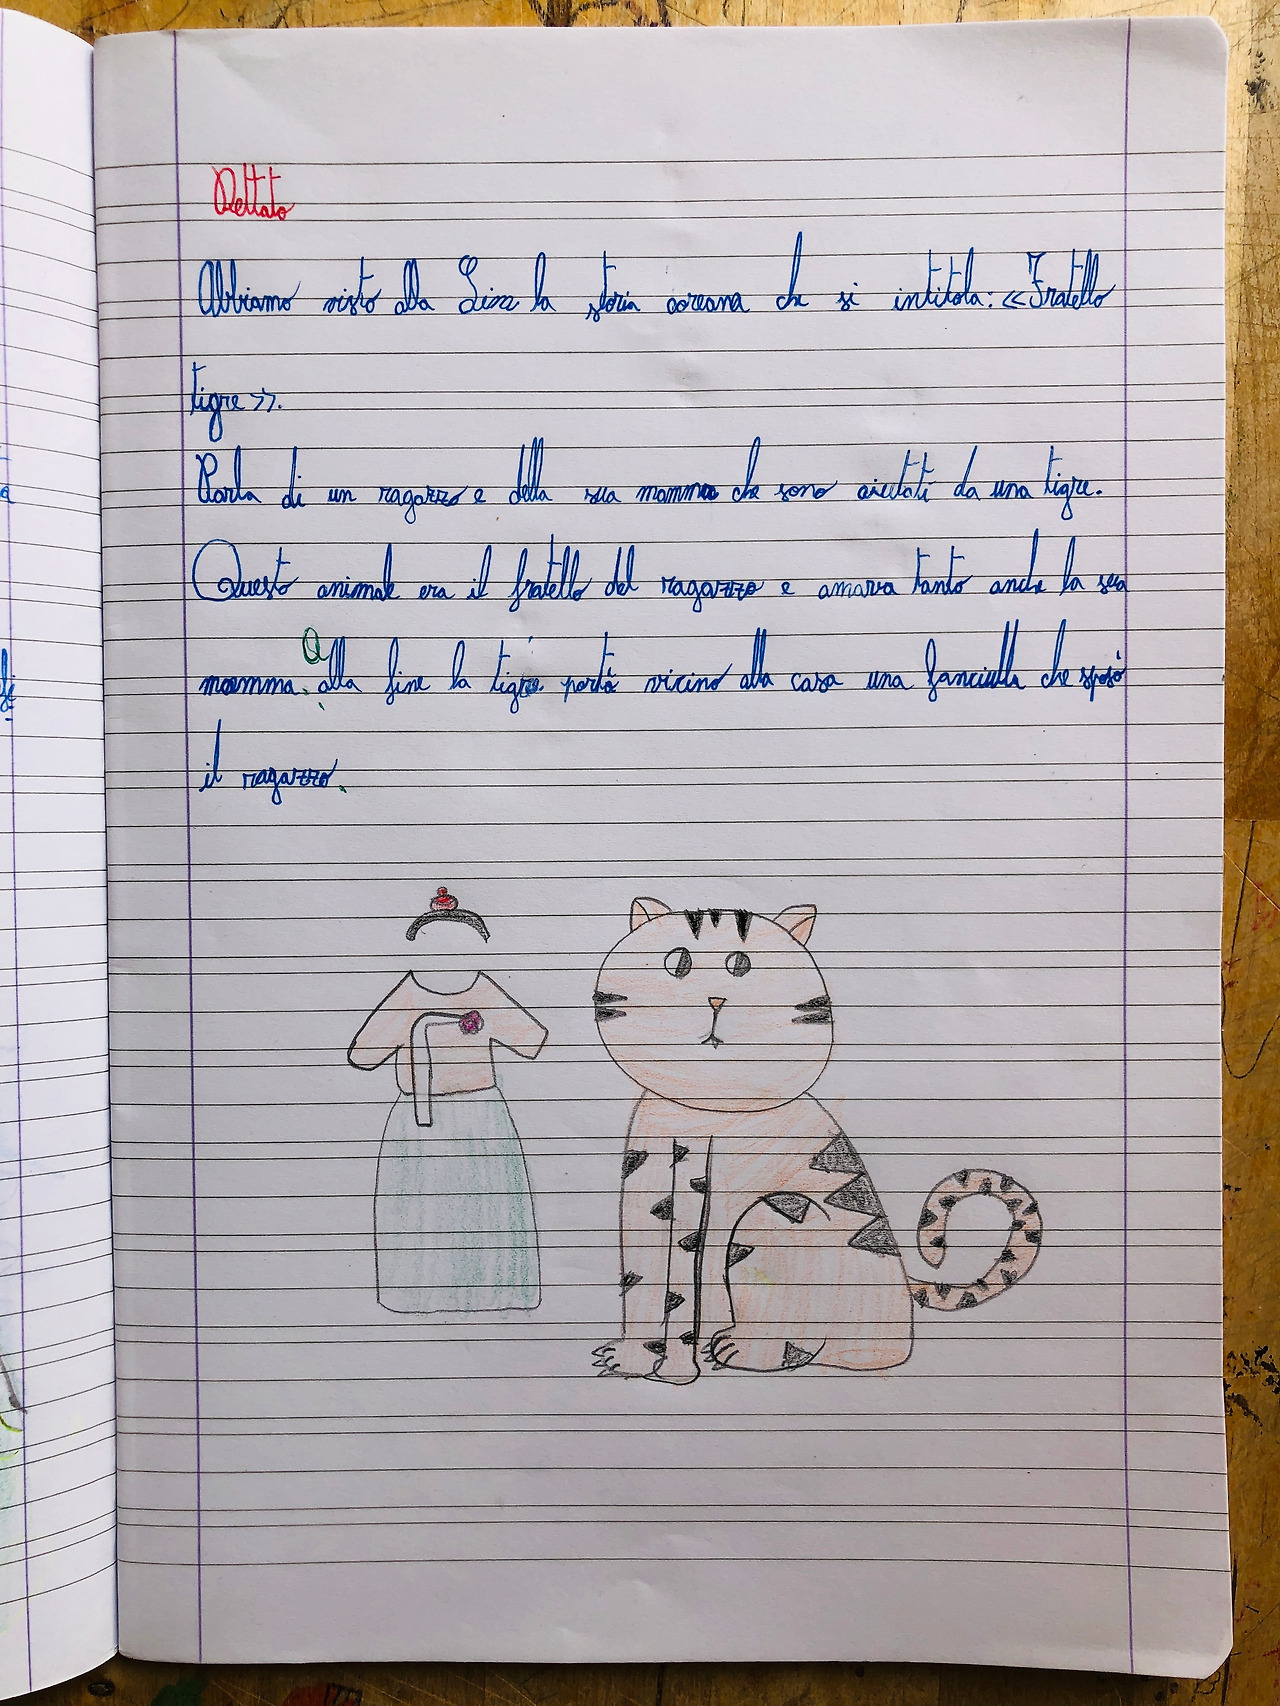 Dettato
Abbiamo visto alla Lim la storia coreana che si intitola: «Fratello
tigre».
Parla di un ragazzo e della sua mamma che sono aiutati da una tigre.
Questo animale era il fratello del ragazzo e amava tanto anche la sua
mamma. Alla fine la tigre portò vicino alla casa una fanciulla che sposò
il ragazzo.